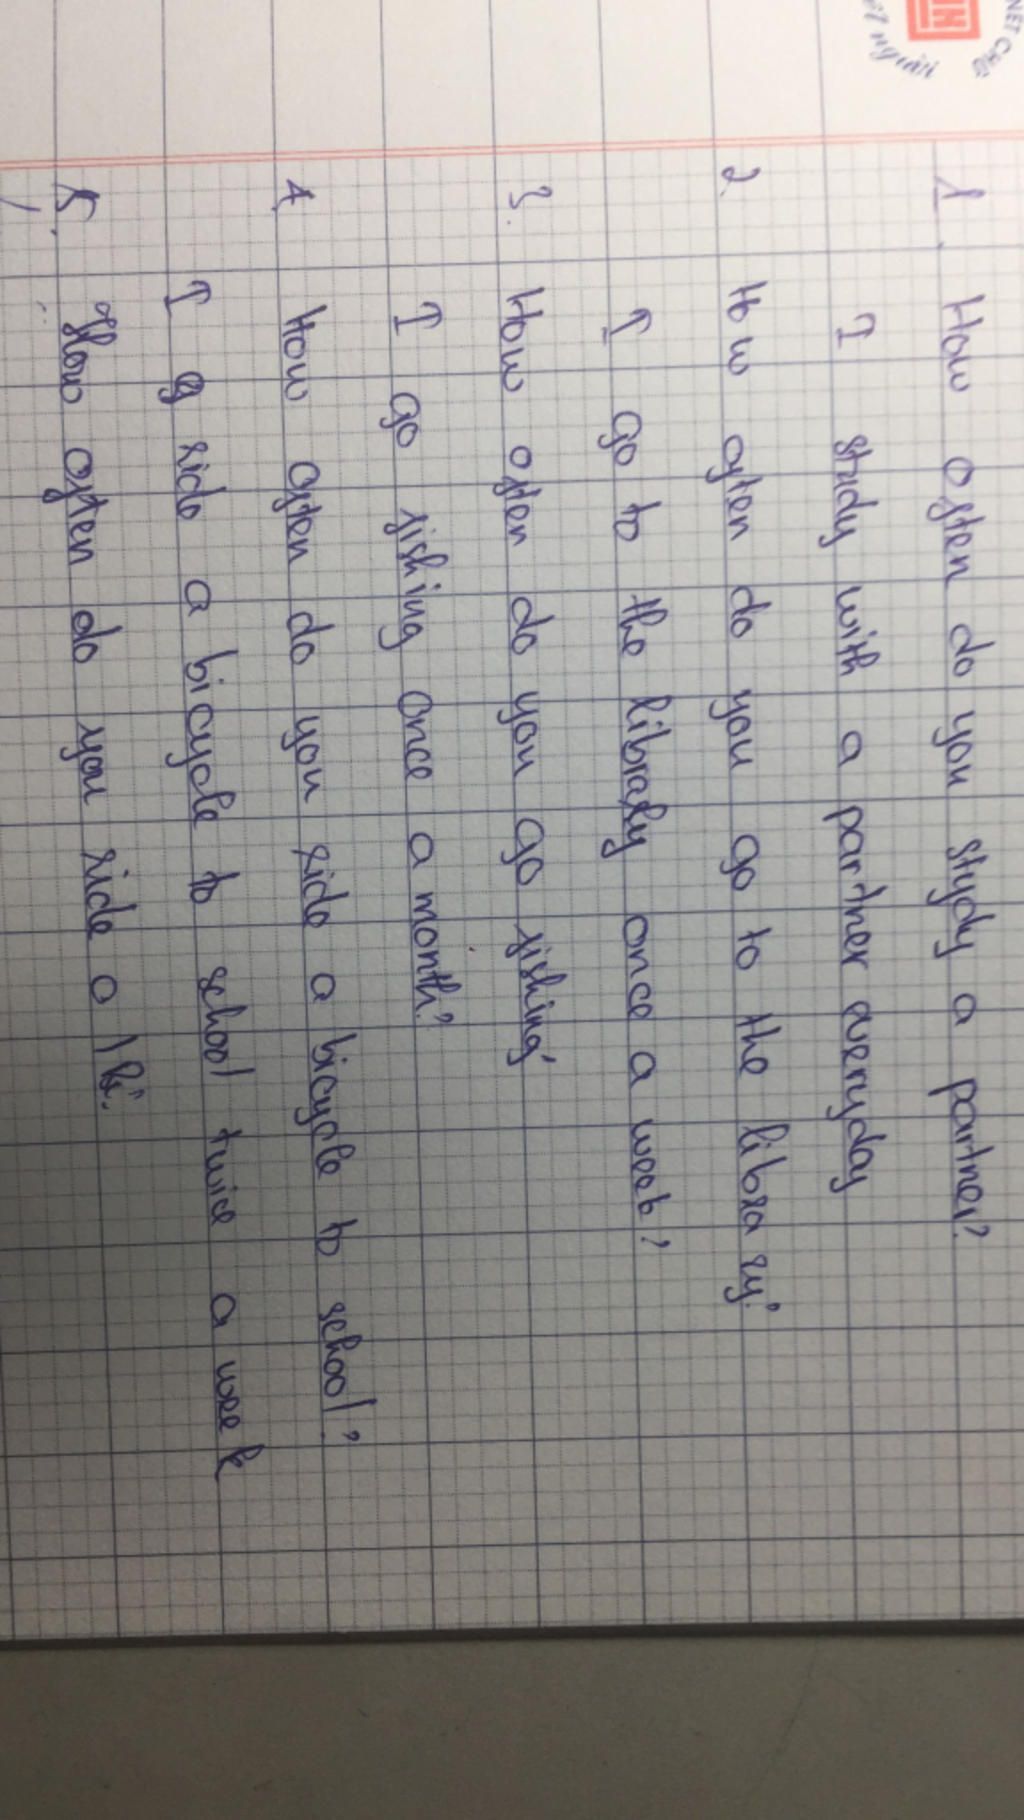 NÉT CHỮ
nết người
1. How often do you study a partner?
I study with a partner everyday
2. How often do you go to the library?
I go to the library once a week?
3. How often do you go fishing?
I go fishing once a month?
4. How often do you ride a bicycle to school?
I ride a bicycle to school twice a week
5. How often do you ride a